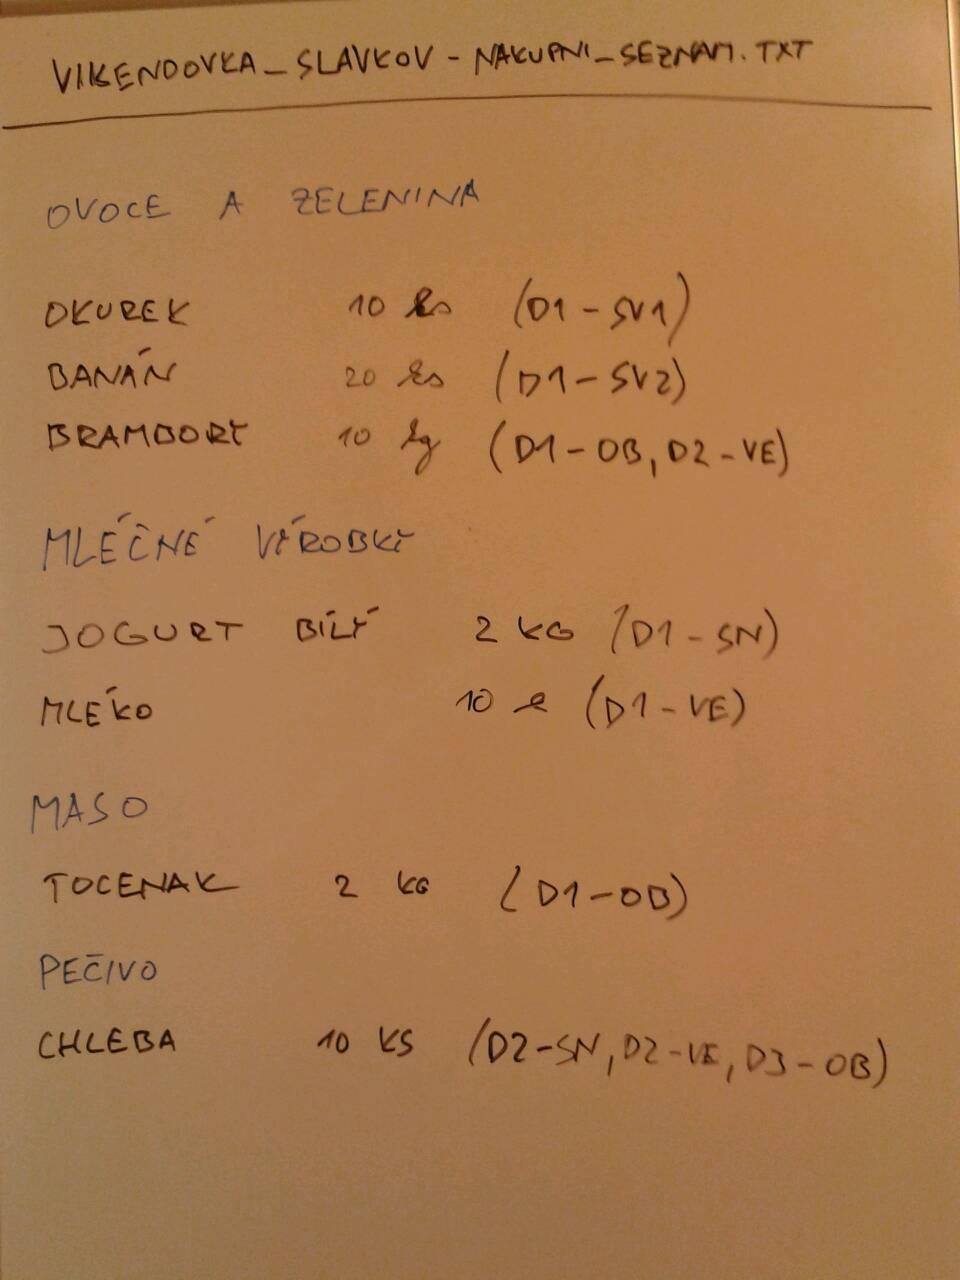 VIKENDOVKA_SLAVKOV - NAKUPNI_SEZNAM.TXT
OVOCE A ZELENINA
OKUREK 10 ks (D1-SV1)
BANÁN 20 ks (D1-SV2)
BRAMBORY 10 kg (D1-OB, D2-VE)
MLÉČNÉ VÝROBKY
JOGURT BÍLÝ 2 KG (D1-SN)
MLÉKO 10 l (D1-VE)
MASO
TOCENAK 2 KG (D1-OB)
PEČIVO
CHLEBA 10 KS (D2-SN, D2-VE, D3-OB)